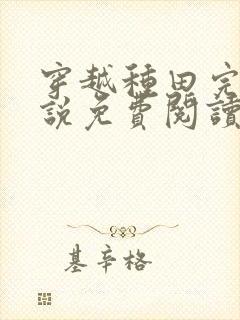 穿越種田完
說免費閱讀
基辛格